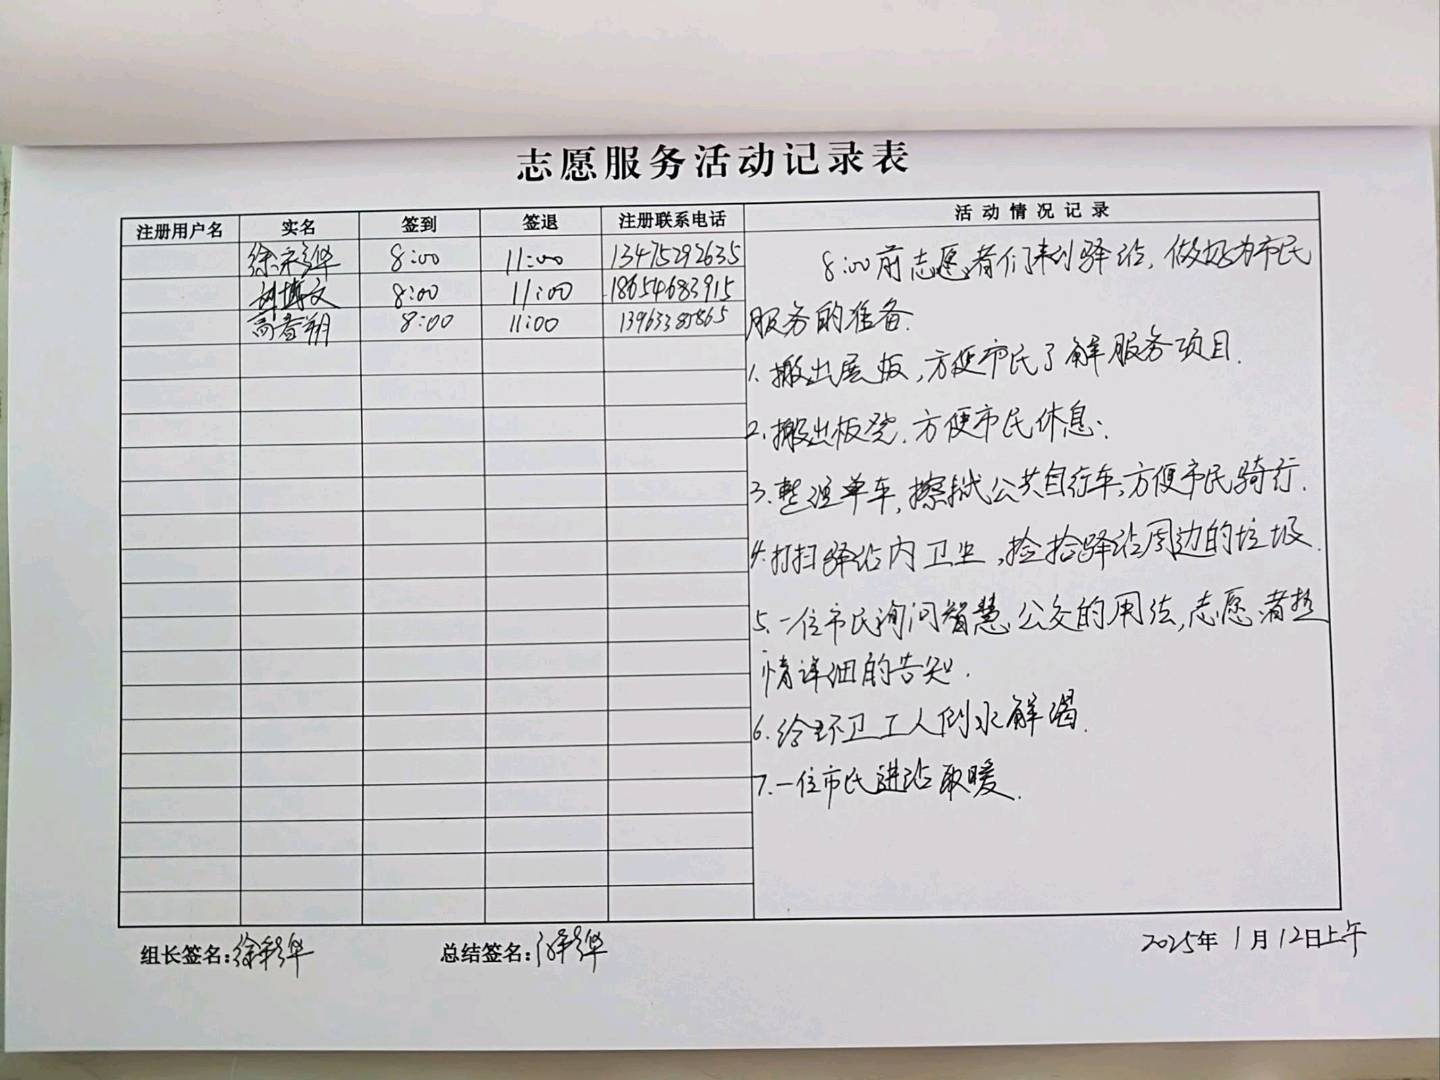 志愿服务活动记录表
注册用户名 实名 签到 签退 注册联系电话 活动情况记录
8:00 11:00 13475292635
博文 8:00 11:00 18654683915
高春翔 8:00 11:00
8:00前志愿者们来到驿站，做好为市民
服务的准备.
1.搬出展板，方便市民了解服务项目.
2.搬出板凳，方便市民休息.
3.整理单车，擦拭公共自行车，方便市民骑行.
4.打扫驿站内卫生，捡拾驿站周边的垃圾.
5.一位市民询问智慧公交的用法，志愿者热
情详细的告知.
6.给环卫工人倒水解渴.
7.一位市民进站取暖.
组长签名:徐彩华 总结签名:
2025年1月12日上午